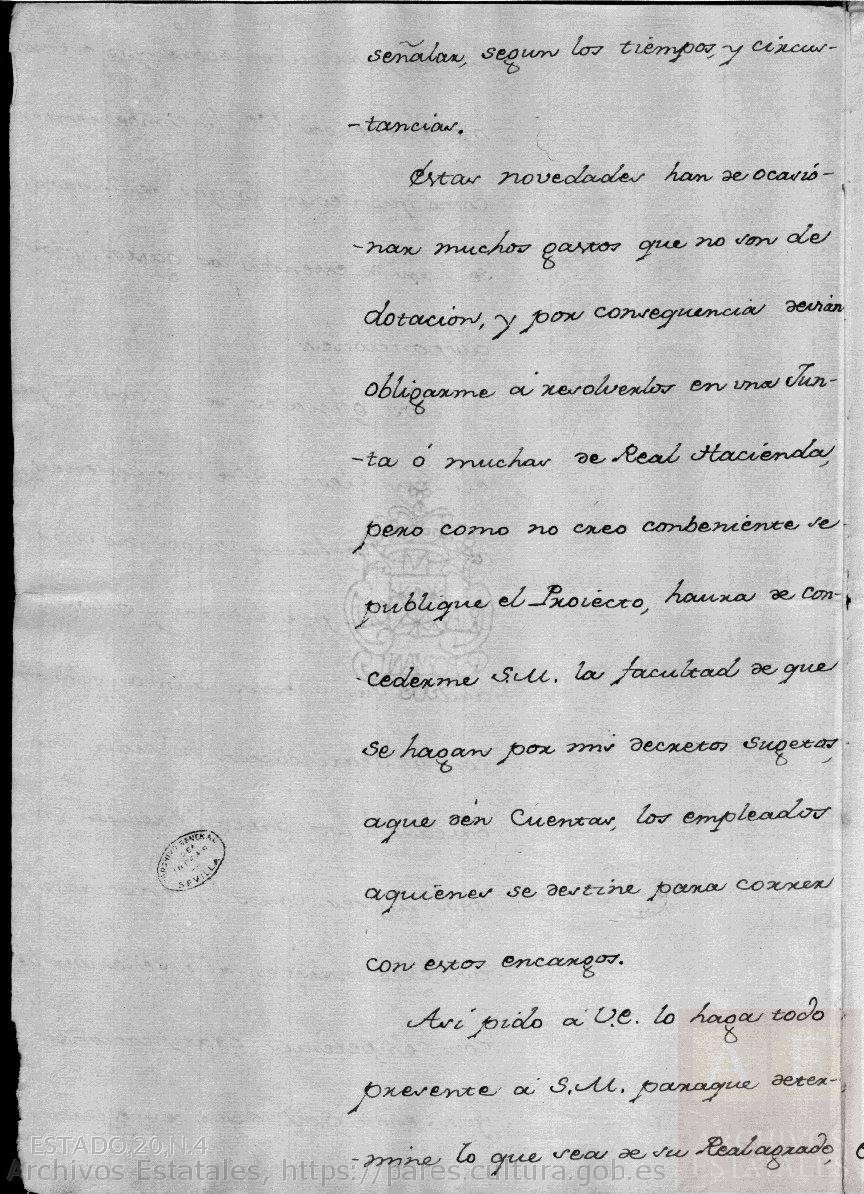 señalar, segun los tiempos, y circus-
-tancias.
Estas novedades han de ocasió-
-nar muchos gastos que no son de
dotación, y por consequencia devrán
obligarme á resolverlos en una Jun-
-ta ó muchas de Real Haciénda,
pero como no creo conbeniénte se
publique el Proiécto, haura de con-
-cederme S.M. la facultad de que
se hagan por mis decretos sugetos,
aque dén Cuentas, los empleados
aquiénes se destine para correr
con estos encargos.
Asi pido á V.E. lo haga todo
presente á S.M. paraque deter-
-mine lo que sea de su Real agrado,
ARCHIVO GENERAL
DE
INDIAS
SEVILLA
ESTADO,20,N.4
Archivos Estatales, https://pares.cultura.gob.es
ARCHIVOS
ESTATALES